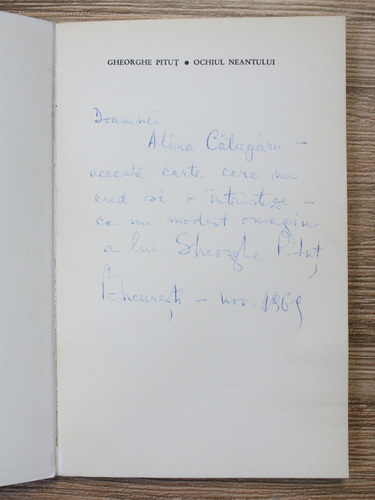 GHEORGHE PITUȚ • OCHIUL NEANTULUI
Doamnei
Alina Călugăru –
această carte care nu
cred că o întristeze –
ca un modest omagiu
a lui Gheorghe Pituț
București – nov. 1969